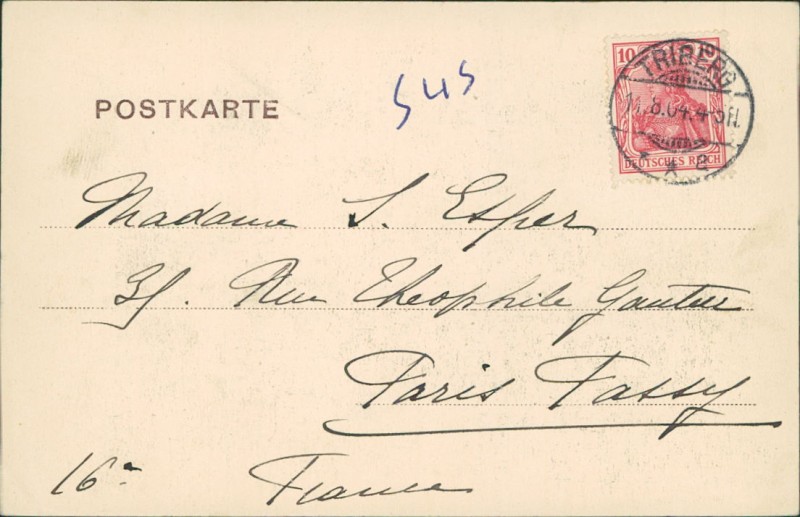 POSTKARTE
545
10 10
TRIBERG
11.8.04.4-5N.
* a
DEUTSCHES REICH
Madame S. Esper
Rue Theophile Gautier
Paris Passy
16e
France